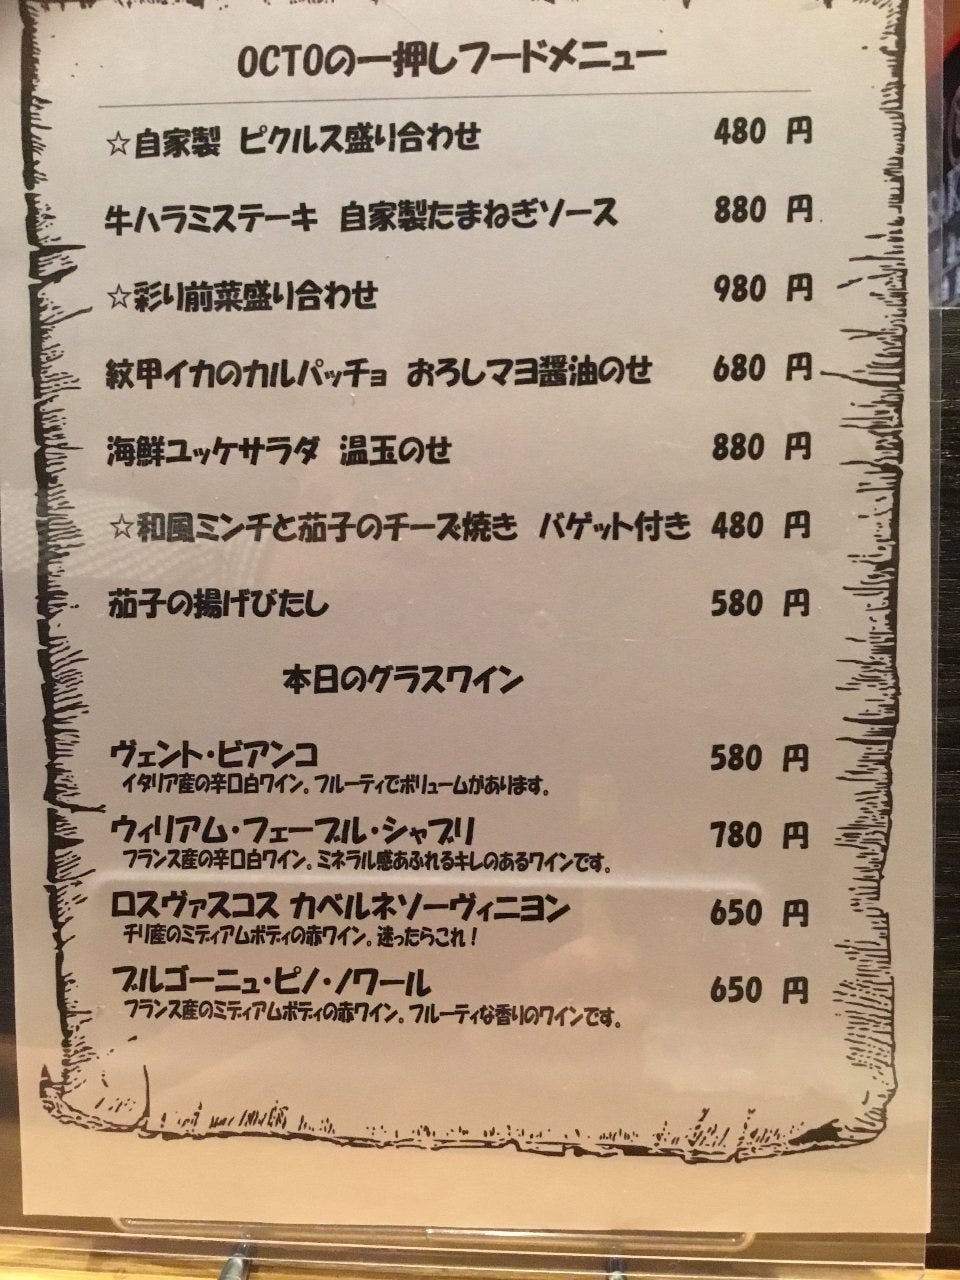 OCTOの一押しフードメニュー
☆自家製 ピクルス盛り合わせ 480 円
牛ハラミステーキ 自家製たまねぎソース 880 円
☆彩り前菜盛り合わせ 980 円
紋甲イカのカルパッチョ おろしマヨ醤油のせ 680 円
海鮮ユッケサラダ 温玉のせ 880 円
☆和風ミンチと茄子のチーズ焼き バゲット付き 480 円
茄子の揚げびたし 580 円
本日のグラスワイン
ヴェント・ビアンコ 580 円
イタリア産の辛口白ワイン。フルーティでボリュームがあります。
ウィリアム・フェーブル・シャブリ 780 円
フランス産の辛口白ワイン。ミネラル感あふれるキレのあるワインです。
ロスヴァスコス カベルネソーヴィニヨン 650 円
チリ産のミディアムボディの赤ワイン。迷ったらこれ！
ブルゴーニュ・ピノ・ノワール 650 円
フランス産のミディアムボディの赤ワイン。フルーティな香りのワインです。